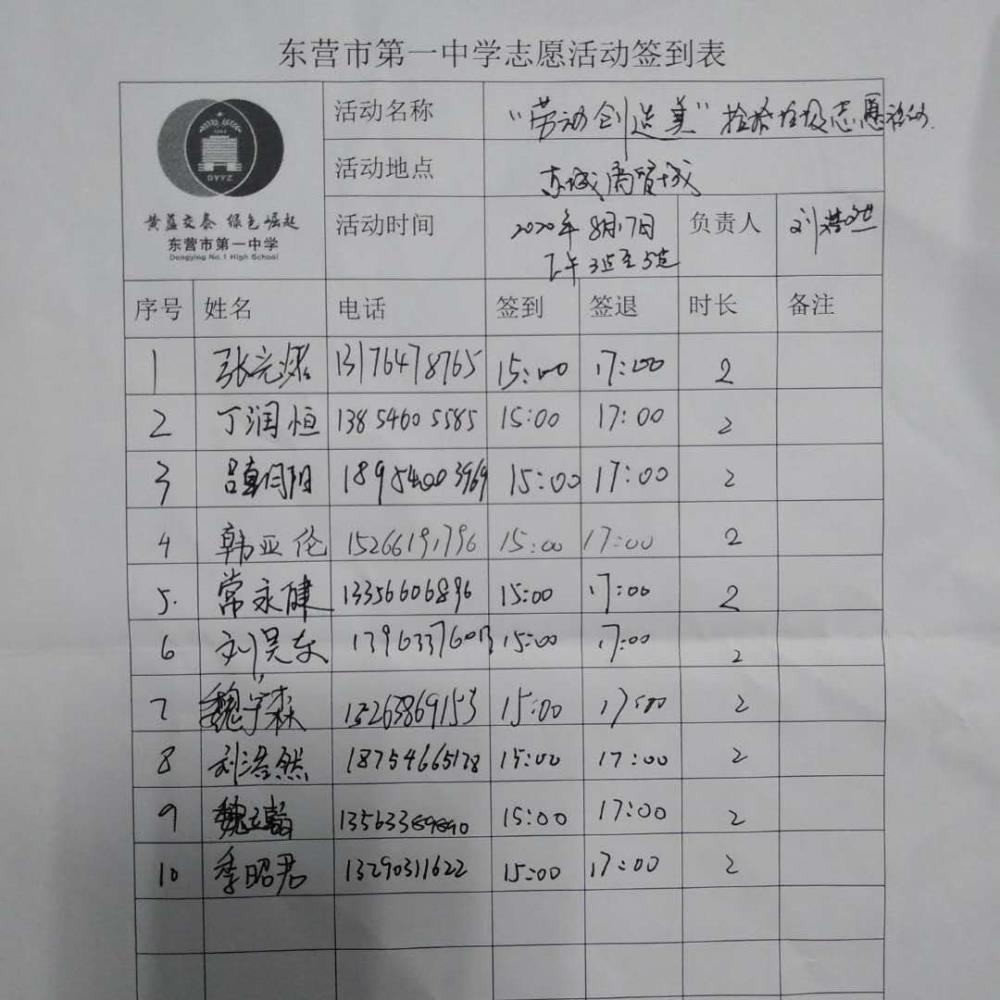 东营市第一中学志愿活动签到表
活动名称 "劳动创造美"捡拾垃圾志愿活动
DYYZ
活动地点 东城商贸城
黄蓝交泰 绿色崛起
东营市第一中学
Dongying No.1 High School
活动时间 2020年8月17日 下午3点至5点 负责人 刘浩然
序号 姓名 电话 签到 签退 时长 备注
1 13176478765 15:00 17:00 2
2 丁润恒 13854605585 15:00 17:00 2
3 吕朝阳 18954003969 15:00 17:00 2
4 韩亚伦 15266191796 15:00 17:00 2
5. 常永健 13356606896 15:00 17:00 2
6 刘昊东 15:00 17:00 2
7 魏宇森 15263869153 15:00 17:00 2
8 刘浩然 18754665178 15:00 17:00 2
9 15:00 17:00 2
10 季昭君 13290311622 15:00 17:00 2